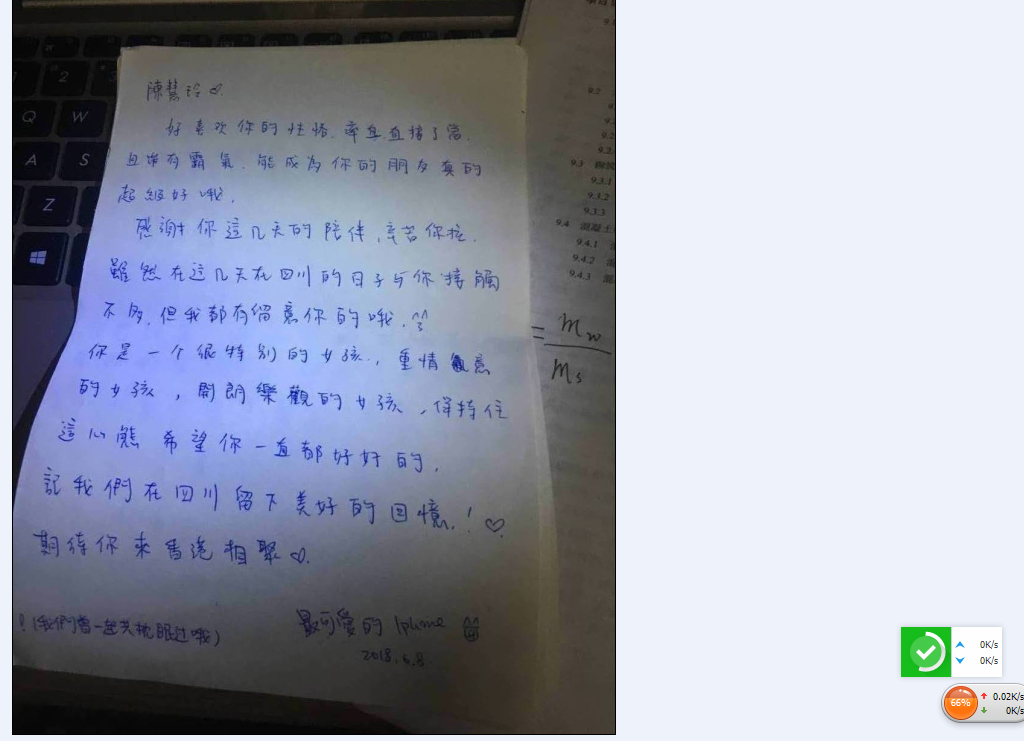 陳慧玲♡.
好喜欢你的性格.率真直接了當.
且常有霸氣.能成為你的朋友真的
超級好哦.
感謝你這几天的陪伴,辛苦你拉.
雖然在這几天在四川的日子与你接觸
不多,但我都有留意你的哦.^^
你是一个很特别的女孩.,重情重意
的女孩,開朗樂觀的女孩,保持住
這心態希望你一直都好好的,
記我們在四川留下美好的回憶.!♡.
期待你来香港相聚♡.
(我們曾一起共枕眠过哦)
最可愛的
2018.6.8
= mw
ms
Q W
A S
Z
2
9.2
9.3
9.3.1
9.3.2
9.3.3
9.4 混凝土
9.4.1
9.4.2
9.4.3
0K/s
0K/s
66%
0.02K/s
0K/s